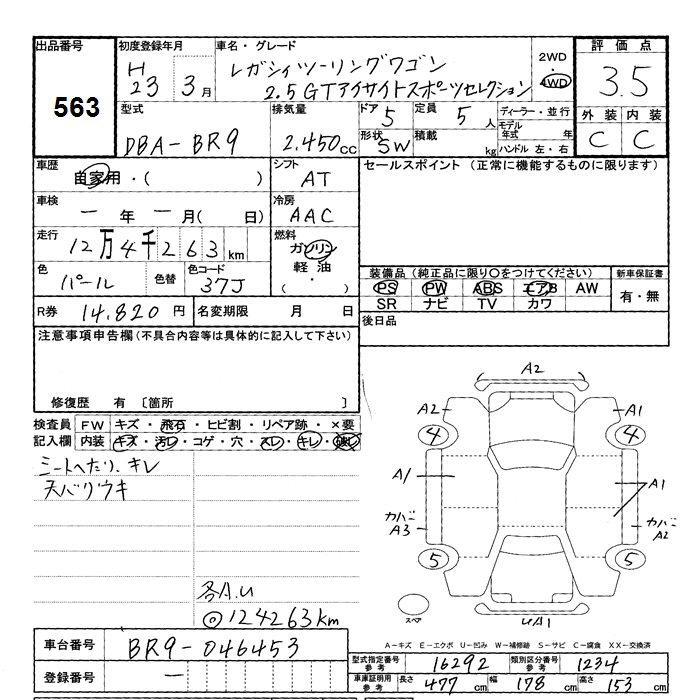 出品番号 初度登録年月 車名・グレード 評価点
563
H 23 3月
レガシィツーリングワゴン
2.5GTアイサイトスポーツセレクション
2WD
4WD
3.5
型式 排気量 ドア 定員 ディーラー・並行 外装 内装
DBA-BR9 2.450cc 5 5人
モデル年式 年
形状 SW 積載 kg ハンドル 左・右
C C
車歴 自家用・( ) シフト AT
セールスポイント (正常に機能するものに限ります)
車検 ー年ー月( 日) 冷房 AAC
走行 12万4千263km 燃料 ガソリン
軽油
( ・ )
色 パール 色替 色コード 37J
装備品 (純正品に限り○をつけてください) 新車保証書
PS PW ABS エアB AW 有・無
SR ナビ TV カワ
R券 14.820円 名変期限 月 日
後日品
注意事項申告欄(不具合内容等は具体的に記入して下さい)
修復歴 有 〔箇所 〕
検査員 FW キズ・飛石・ヒビ割・リペア跡・×要
記入欄 内装 キズ・汚レ・コゲ・穴・スレ・キレ・
シートへたり、キレ
天バリウキ
各A.U
◎124263km
A2
A2 A1
4 4
A1 A1
カバー A3 カバー A2
5 5
スペア
UA1
A-キズ E-エクボ U-凹み W-補修跡 S-サビ C-腐食 XX-交換済
車台番号 BR9-046453
登録番号 ー
型式指定番号 参考 16292 類別区分番号 参考 1234
車庫証明用 参考 長さ 477cm 幅 178cm 高さ 153cm